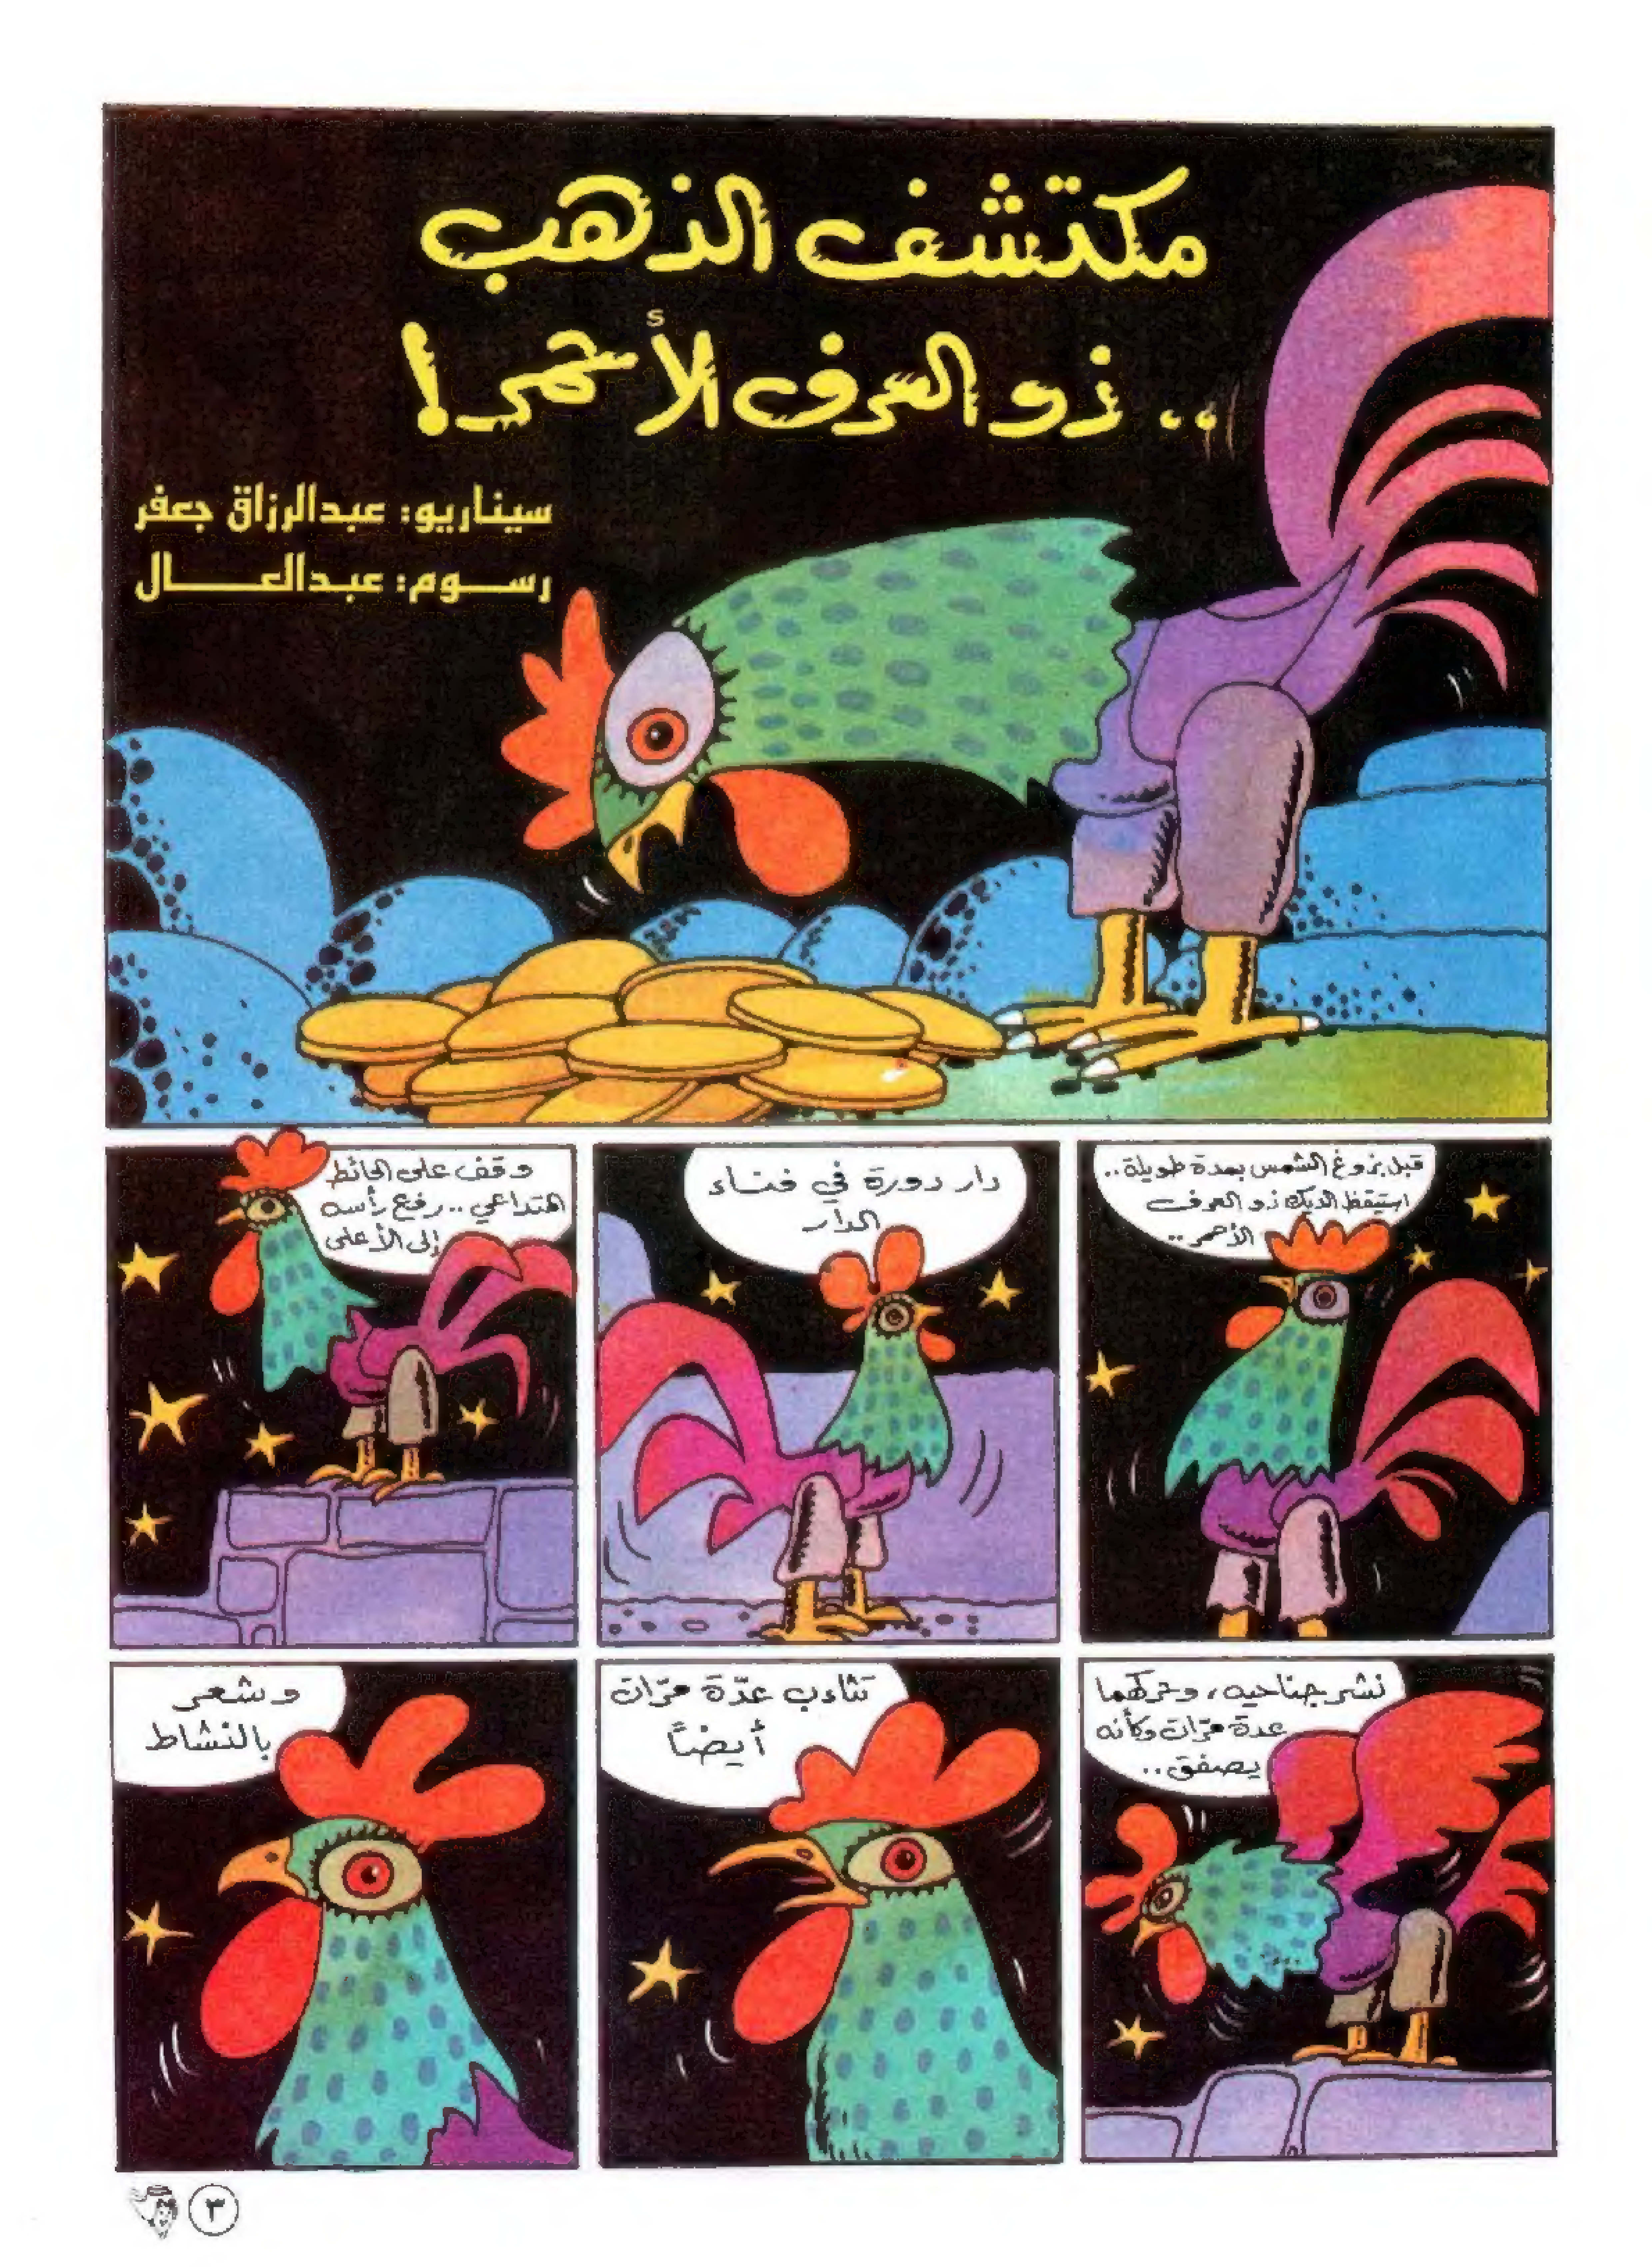 مكتشف الذهب
.. ذو العرف الأحمر!
سيناريو: عبدالرزاق جعفر
رسوم: عبدالعال
قبل بزوغ الشمس بمدة طويلة..
استيقظ الديك ذو العرف
الأحمر..
دار دورة في فناء
الدار
وقف على الحائط
المتداعي.. رفع رأسه
إلى الأعلى
نشر جناحيه، وحركهما
عدة مرّات وكأنه
يصفق..
تثاءب عدّة مرّات
أيضاً
وشعر
بالنشاط
٣